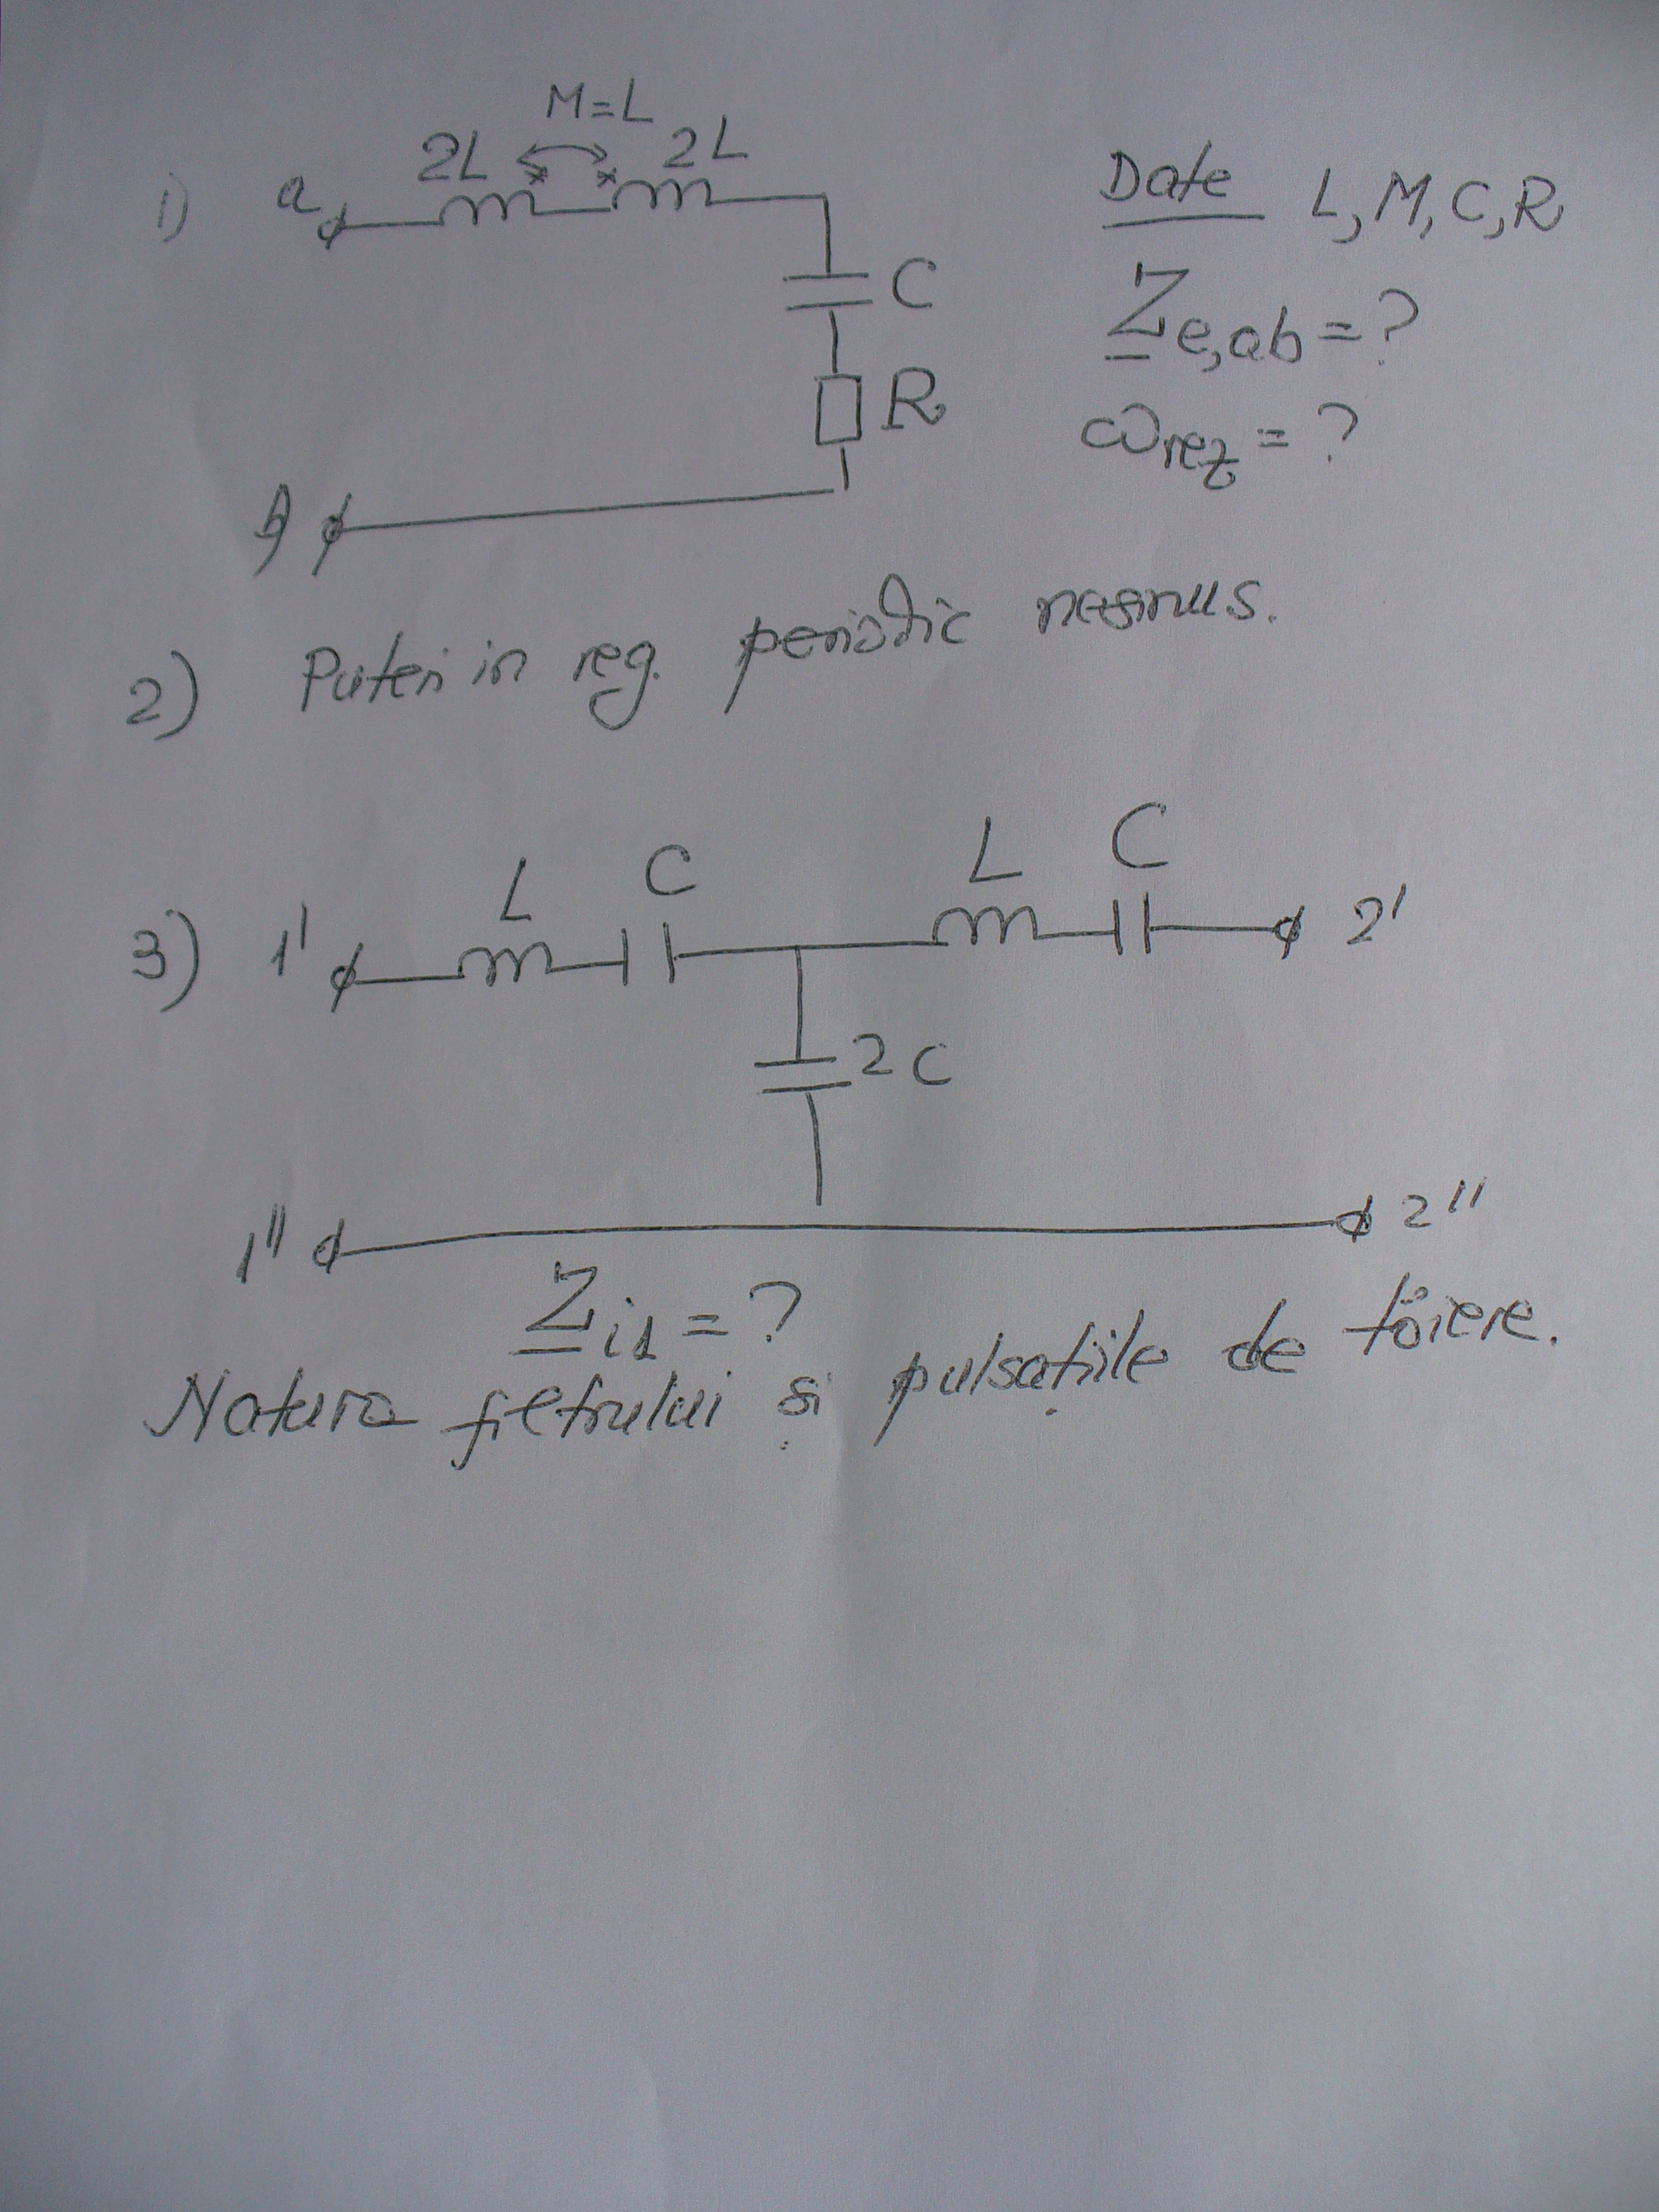 M=L
2L 2L
1) a
Date L, M, C, R
C
Z e,ab = ?
R
ωrez = ?
b
2) Puteri in reg. periodic nesinus.
L C L C
3) 1' 2'
2C
1" 2"
Z i1 = ?
Natura filtrului și pulsațiile de tăiere.